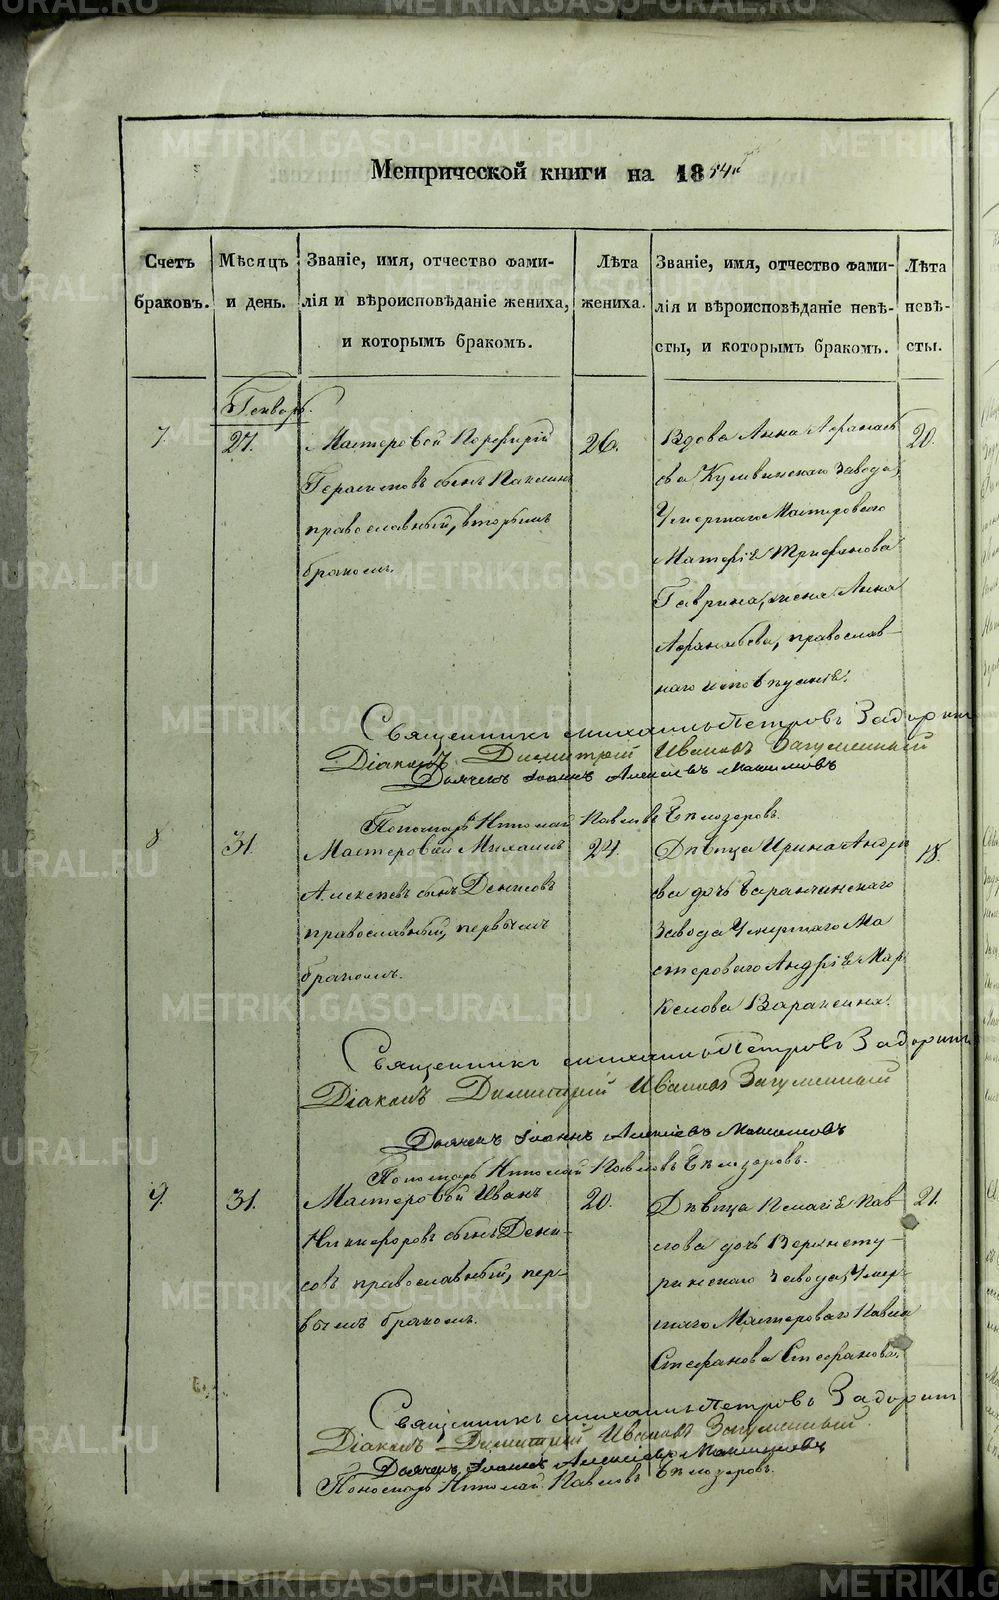 Метрической книги на 1854й
Счетъ браковъ.
Мѣсяцъ и день.
Званіе, имя, отчество фами-
лія и вѣроисповѣданіе жениха,
и которымъ бракомъ.
Лѣта жениха.
Званіе, имя, отчество фами-
лія и вѣроисповѣданіе невѣ-
сты, и которымъ бракомъ.
Лѣта невѣ-
сты.
Генварь.
7.
27.
Мастеровой Порфирій
Герасимовъ сынъ
православный, вторымъ
бракомъ.
26.
Вдова Анна Афанась
ева Кушвинскаго Завода
Умершаго Мастероваго
Матфѣя Трифонова
Гаврина, жена Анна
Афанасьева, православ-
наго исповѣданія.
20.
Священникъ Михаилъ Петровъ Задоринъ
Діаконъ Димитрій Ивановъ Загуменный
Дьячекъ Іоаннъ Алексѣевъ Максимовъ
Пономарь Николай Павловъ Бѣлозеровъ.
8
31.
Мастеровой Михаилъ
Алексѣевъ сынъ Денисовъ
православный, первымъ
бракомъ.
24.
Дѣвица Ирина Андре
ева дочь Баранчинскаго
Завода Умершаго Ма
стероваго Андрѣя Мар
келова Вараксина.
18.
Священникъ Михаилъ Петровъ Задоринъ
Діаконъ Димитрій Ивановъ Загуменный
Дьячекъ Іоаннъ Алексѣевъ Максимовъ
Пономарь Николай Павловъ Бѣлозеровъ.
9.
31.
Мастеровой Иванъ
Никифоровъ сынъ Дени-
совъ православный, пер-
вымъ бракомъ.
20.
Дѣвица Пелагѣя Пав-
лова дочь Верхнету-
ринскаго Завода, Умер-
шаго Мастероваго Павла
Стефанова Стефанова.
21.
Священникъ Михаилъ Петровъ Задоринъ
Діаконъ Димитрій Ивановъ Загуменный
Дьячекъ Іоаннъ Алексѣевъ Максимовъ
Пономарь Николай Павловъ Бѣлозеровъ.
METRIKI.GASO-URAL.RU